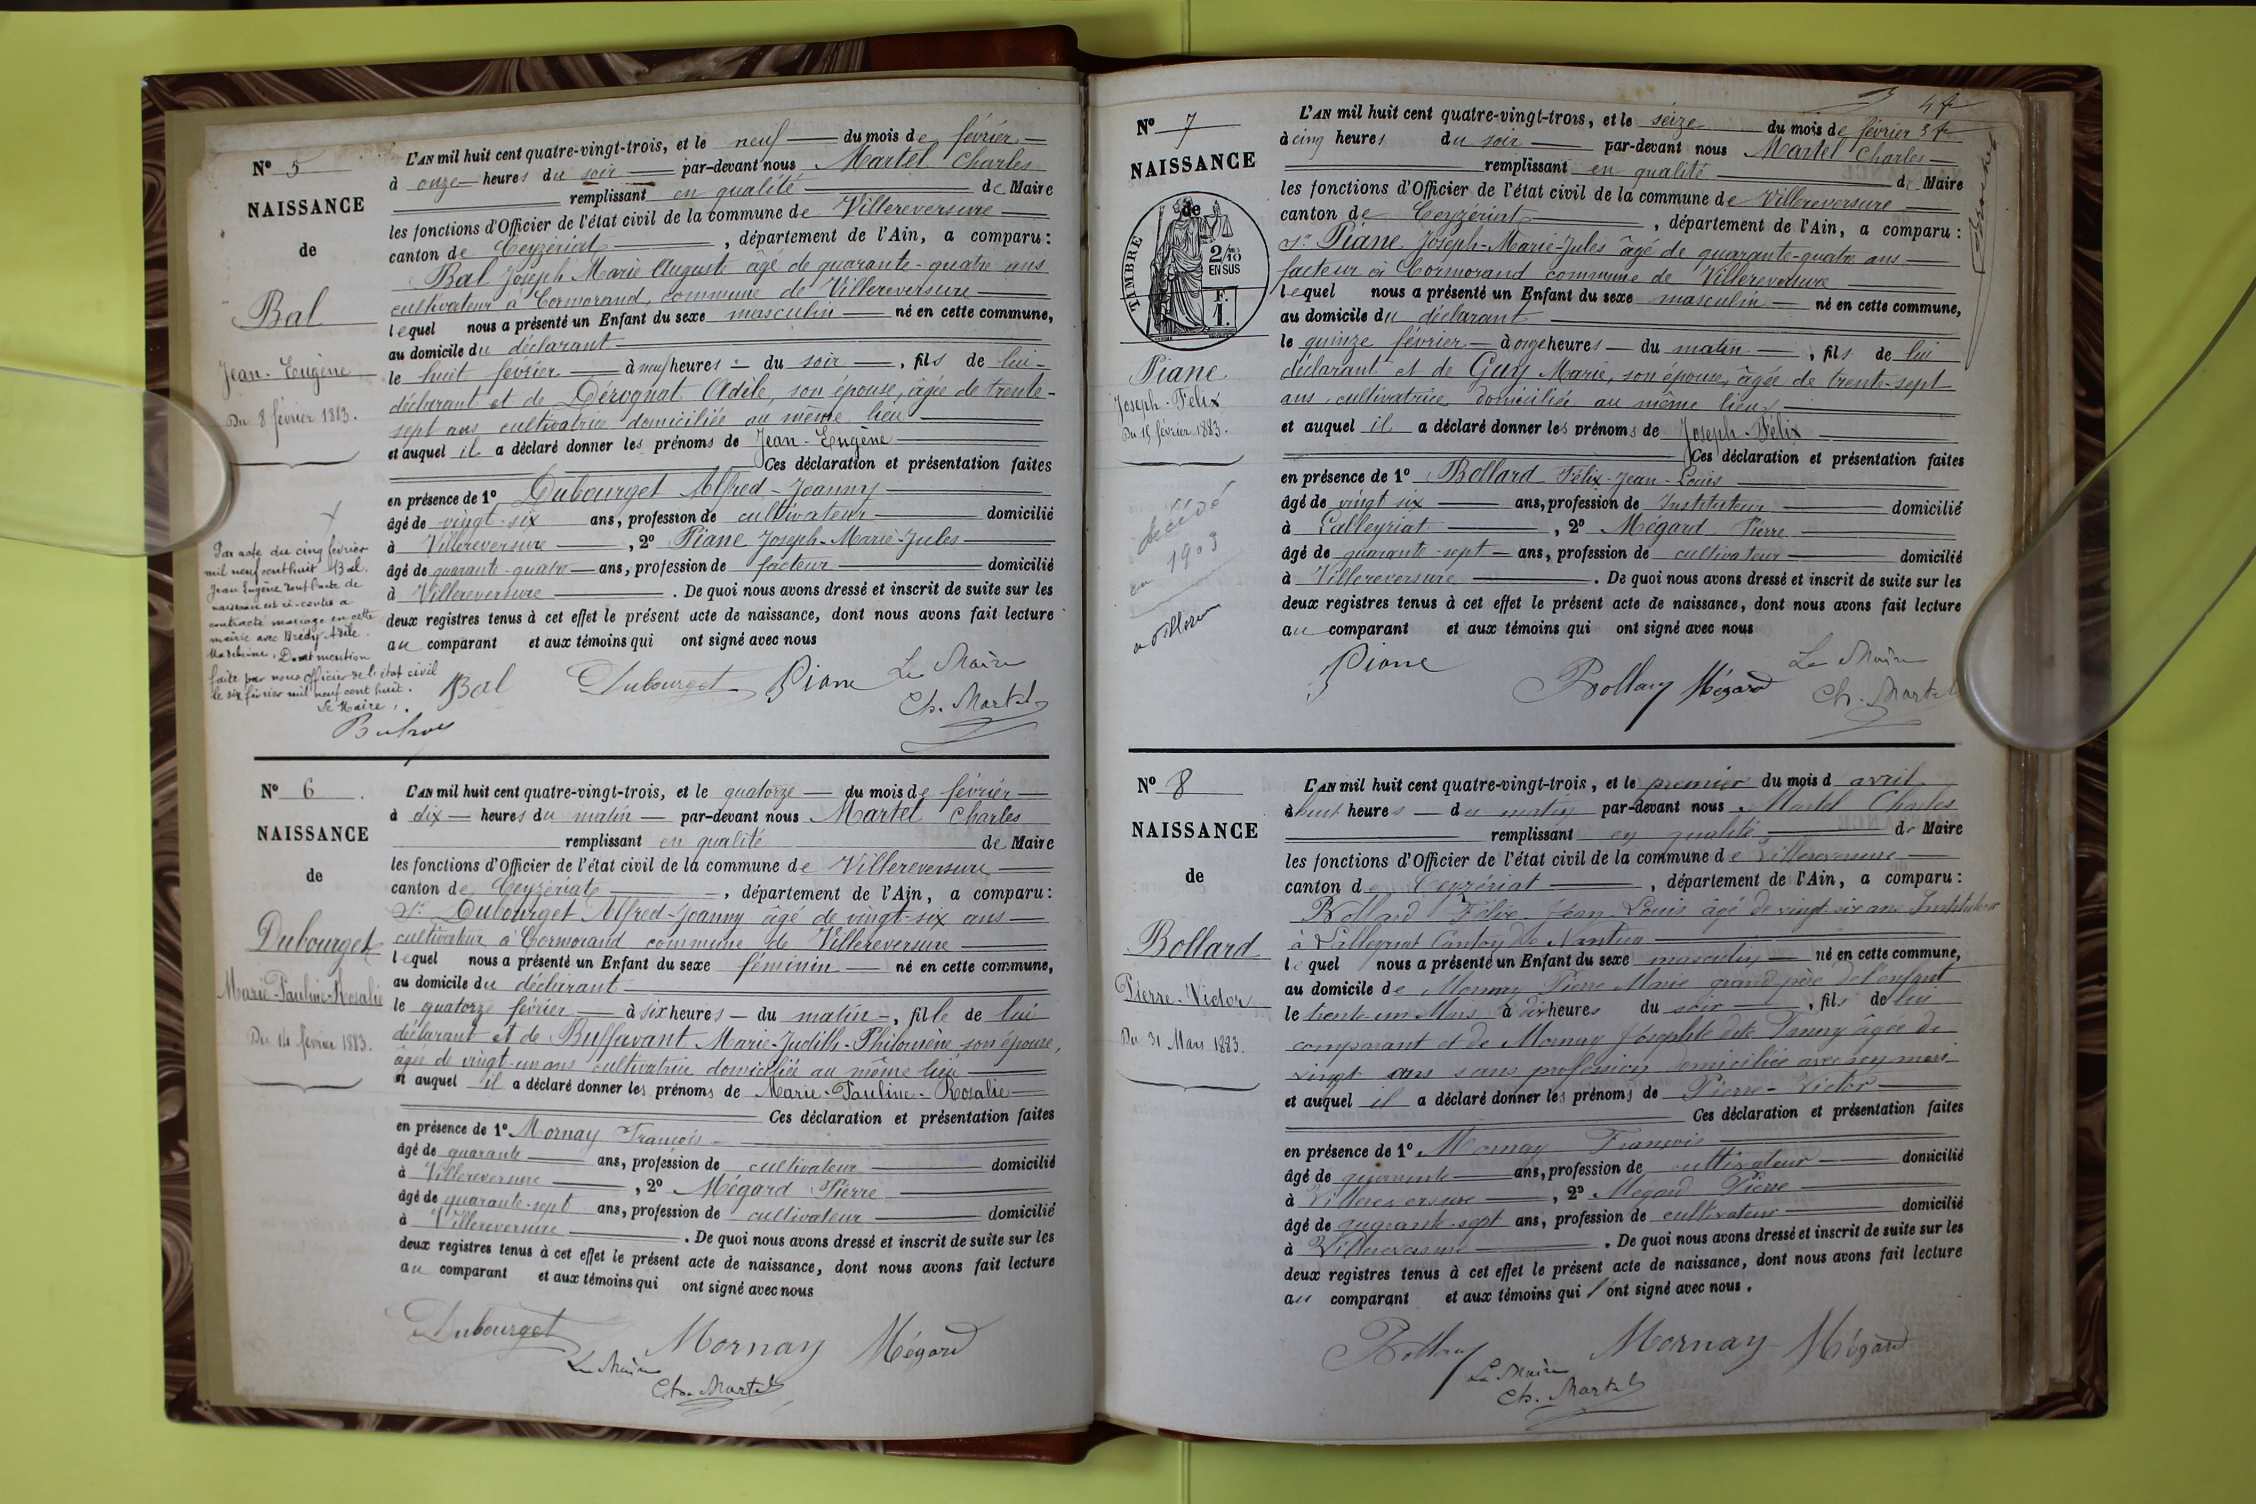 N° 5
NAISSANCE
de
Bal
Jean-Eugène
Du 8 février 1883.
Par acte du cinq février
mil neuf cent huit Bal
Jean Eugène dont l'acte de
naissance est ci-contre a
contracté mariage en cette
mairie avec Brédy Adèle
Madeleine. Dont mention
faite par nous officier de l'état civil
le six février mil neuf cent huit.
Le Maire,
L'AN mil huit cent quatre-vingt-trois, et le neuf du mois de février
à onze heures du soir par-devant nous Martel Charles
remplissant en qualité de Maire
les fonctions d'Officier de l'état civil de la commune de Villereversure
canton de Ceyzériat, département de l'Ain, a comparu :
Bal Joseph Marie Auguste âgé de quarante-quatre ans
cultivateur à Cormorand, commune de Villereversure
lequel nous a présenté un Enfant du sexe masculin né en cette commune,
au domicile du déclarant
le huit février à neuf heures du soir, fils de lui
déclarant et de Dérognat Adèle, son épouse, âgée de trente-
sept ans cultivatrice domiciliée au même lieu
et auquel il a déclaré donner les prénoms de Jean-Eugène
Ces déclaration et présentation faites
en présence de 1° Dubourget Alfred-Joanny
âgé de vingt-six ans, profession de cultivateur domicilié
à Villereversure, 2° Piane Joseph-Marie-Jules
âgé de quarante-quatre ans, profession de facteur domicilié
à Villereversure. De quoi nous avons dressé et inscrit de suite sur les
deux registres tenus à cet effet le présent acte de naissance, dont nous avons fait lecture
au comparant et aux témoins qui ont signé avec nous
Bal Dubourget Piane Le Maire
Ch. Martel
N° 6
NAISSANCE
de
Dubourget
Marie-Pauline-Rosalie
Du 14 février 1883.
L'AN mil huit cent quatre-vingt-trois, et le quatorze du mois de février
à dix heures du matin par-devant nous Martel Charles
remplissant en qualité de Maire
les fonctions d'Officier de l'état civil de la commune de Villereversure
canton de Ceyzériat, département de l'Ain, a comparu :
Sr Dubourget Alfred-Joanny âgé de vingt-six ans
cultivateur à Cormorand commune de Villereversure
lequel nous a présenté un Enfant du sexe féminin né en cette commune,
au domicile du déclarant
le quatorze février à six heures du matin, fille de lui
déclarant et de Buffavant Marie-Judith-Philomène son épouse,
âgée de vingt-un ans cultivatrice domiciliée au même lieu
et auquel il a déclaré donner les prénoms de Marie-Pauline-Rosalie
Ces déclaration et présentation faites
en présence de 1° Mornay François
âgé de quarante ans, profession de cultivateur domicilié
à Villereversure, 2° Mégard Pierre
âgé de quarante-sept ans, profession de cultivateur domicilié
à Villereversure. De quoi nous avons dressé et inscrit de suite sur les
deux registres tenus à cet effet le présent acte de naissance, dont nous avons fait lecture
au comparant et aux témoins qui ont signé avec nous
Dubourget Mornay Mégard
Le Maire
Ch. Martel
N° 7
NAISSANCE
de
TIMBRE
2/10
EN SUS
F.
1.
Piane
Joseph-Félix
Du 15 février 1883.
décédé
en 1903
L'AN mil huit cent quatre-vingt-trois, et le seize du mois de février
à cinq heures du soir par-devant nous Martel Charles
remplissant en qualité de Maire
les fonctions d'Officier de l'état civil de la commune de Villereversure
canton de Ceyzériat, département de l'Ain, a comparu :
Sr Piane Joseph-Marie-Jules âgé de quarante-quatre ans
facteur à Cormorand commune de Villereversure
lequel nous a présenté un Enfant du sexe masculin né en cette commune,
au domicile du déclarant
le quinze février à onze heures du matin, fils de lui
déclarant et de Guy Marie, son épouse, âgée de trente-sept
ans, cultivatrice domiciliée au même lieu
et auquel il a déclaré donner les prénoms de Joseph-Félix
Ces déclaration et présentation faites
en présence de 1° Bollard Félix-Jean-Louis
âgé de vingt six ans, profession de Instituteur domicilié
à Lalleyriat, 2° Mégard Pierre
âgé de quarante-sept ans, profession de cultivateur domicilié
à Villereversure. De quoi nous avons dressé et inscrit de suite sur les
deux registres tenus à cet effet le présent acte de naissance, dont nous avons fait lecture
au comparant et aux témoins qui ont signé avec nous
Piane Bollard Mégard Le Maire
Ch. Martel
N° 8
NAISSANCE
de
Bollard
Pierre-Victor
Du 31 Mars 1883.
L'AN mil huit cent quatre-vingt-trois, et le premier du mois d avril
à huit heures du matin par-devant nous Martel Charles
remplissant en qualité de Maire
les fonctions d'Officier de l'état civil de la commune de Villereversure
canton de Ceyzériat, département de l'Ain, a comparu :
Bollard Félix-Jean-Louis âgé de vingt six ans Instituteur
à Lalleyriat Canton de Nantua
lequel nous a présenté un Enfant du sexe masculin né en cette commune,
au domicile de Mornay Pierre Marie grand père de l'enfant
le trente un Mars à dix heures du soir, fils de lui
comparant et de Mornay Josephte dite Fanny âgée de
vingt ans sans profession domiciliée avec son mari
et auquel il a déclaré donner les prénoms de Pierre-Victor
Ces déclaration et présentation faites
en présence de 1° Mornay François
âgé de quarante ans, profession de cultivateur domicilié
à Villereversure, 2° Mégard Pierre
âgé de quarante-sept ans, profession de cultivateur domicilié
à Villereversure. De quoi nous avons dressé et inscrit de suite sur les
deux registres tenus à cet effet le présent acte de naissance, dont nous avons fait lecture
au comparant et aux témoins qui ont signé avec nous.
Bollard Mornay Mégard
Le Maire
Ch. Martel